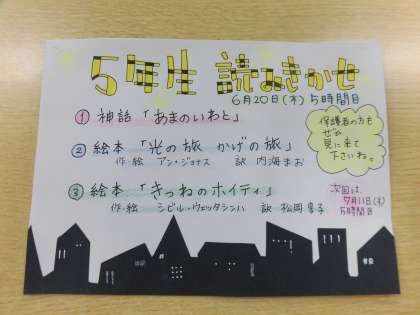 5年生 読みきかせ
6月20日(木)5時間目
① 神話「あまのいわと」
② 絵本「光の旅 かげの旅」
作・絵 アン・ジョナス 訳 内海まお
③ 絵本「きつねのホイティ」
作・絵 シビル・ウェッタシンハ 訳 松岡享子
保護者の方も
ぜひ
見に来て
下さいね。
次回は、
7月11日(木)
5時間目